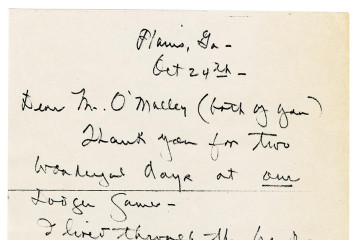 Plains, Ga -
Oct 24th -
Dear Mr. O'Malley (both of you)
Thank you for two
wonderful days at our
Dodger Games -
I lived through the